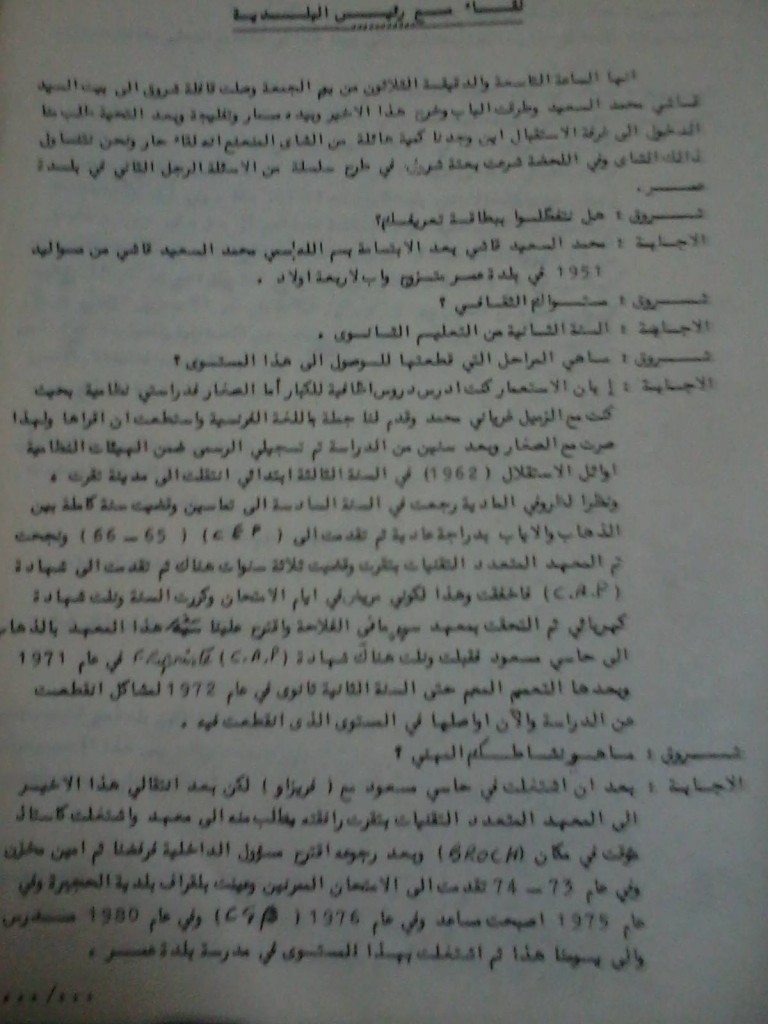 لقاء مع رئيس البلدية
انها الساعة التاسعة والدقيقة الثلاثون من يوم الجمعة وصلت قافلة شروق الى بيت السيد
قاشي محمد السعيد وطرقت الباب وخرج هذا الاخير وبيده مسمار وبعد التحية طلب منا
الدخول الى غرفة الاستقبال اين وجدنا كمية هائلة من الشاي المنعنع انه لقاء حار ونحن نتناول
ذالك الشاي وفي اللحضة شرعت بعثة شروق في طرح سلسلة من الاسئلة الرجل الثاني في بلدة
عمر .
شروق : هل تتفضلوا ببطاقة تعريفكم؟
الاجابة : محمد السعيد قاشي بعد الابتسامة بسم الله إسمي محمد السعيد قاشي من مواليد
1951 في بلدة عمر متزوج واب لاربعة اولاد .
شروق : مستواكم الثقافي ؟
الاجابة : السنة الثانية من التعليم الثانوى .
شروق : ماهي المراحل التي قطعتها للوصول الى هذا المستوى ؟
الاجابة : إبان الاستعمار كنت ادرس دروس اضافية للكبار أما الصغار فدراستي نظامية بحيث
كنت مع الزميل غرياني محمد وقدم لنا جملة باللغة الفرنسية واستطعت ان اقراها ولهذا
صرت مع الصغار وبعد سنين من الدراسة تم تسجيلي الرسمى ضمن الهيئات النظامية
اوائل الاستقلال (1962) في السنة الثالثة ابتدائي انتقلت الى مدينة تقرت ،
ونظرا لظروفي المادية رجعت في السنة السادسة الى تماسين وقضيت سنة كاملة بين
الذهاب والاياب بدراجة عادية ثم تقدمت الى (C E P) (65 - 66) ونجحت
ثم المعهد المتعدد التقنيات بتقرت وقضيت ثلاثة سنوات هناك ثم تقدمت الى شهادة
(C.A.P) فاخفقت وهذا لكوني مريض في ايام الامتحان وكررت السنة ونلت شهادة
كهربائي ثم التحقت بمعهد سيدي مافى الفلاحة واقترح علينا هذا المعهد بالذهاب
الى حاسي مسعود فقبلت ونلت هناك شهادة (C.A.P) في عام 1971
وبعدها التعميم المعمم حتى السنة الثانية ثانوى في عام 1972 لمشاكل انقطعت
عن الدراسة والآن اواصلها في المستوى الذى انقطعت فيه .
شروق : ماهو نشاطكم المهني ؟
الاجابة : بعد ان اشتغلت في حاسي مسعود مع (فريزاو) لكن بعد انتقالي هذا الاخير
الى المعهد المتعدد التقنيات بتقرت رافقته بطلب منه الى معهد واشتغلت كاستاذ
مؤقت في مكان (BROCH) وبعد رجوعه اقترح مسؤول الداخلية فرفضنا ثم امين مخزن
وفي عام 73 - 74 تقدمت الى الامتحان الممرنين وعينت بلقراف بلدية الحجيرة وفي
عام 1975 اصبحت مساعد وفي عام 1976 وفي عام 1980 مدرس
والى يومنا هذا ثم اشتغلت بهذا المستوى في مدرسة بلدة عمر .
.../...